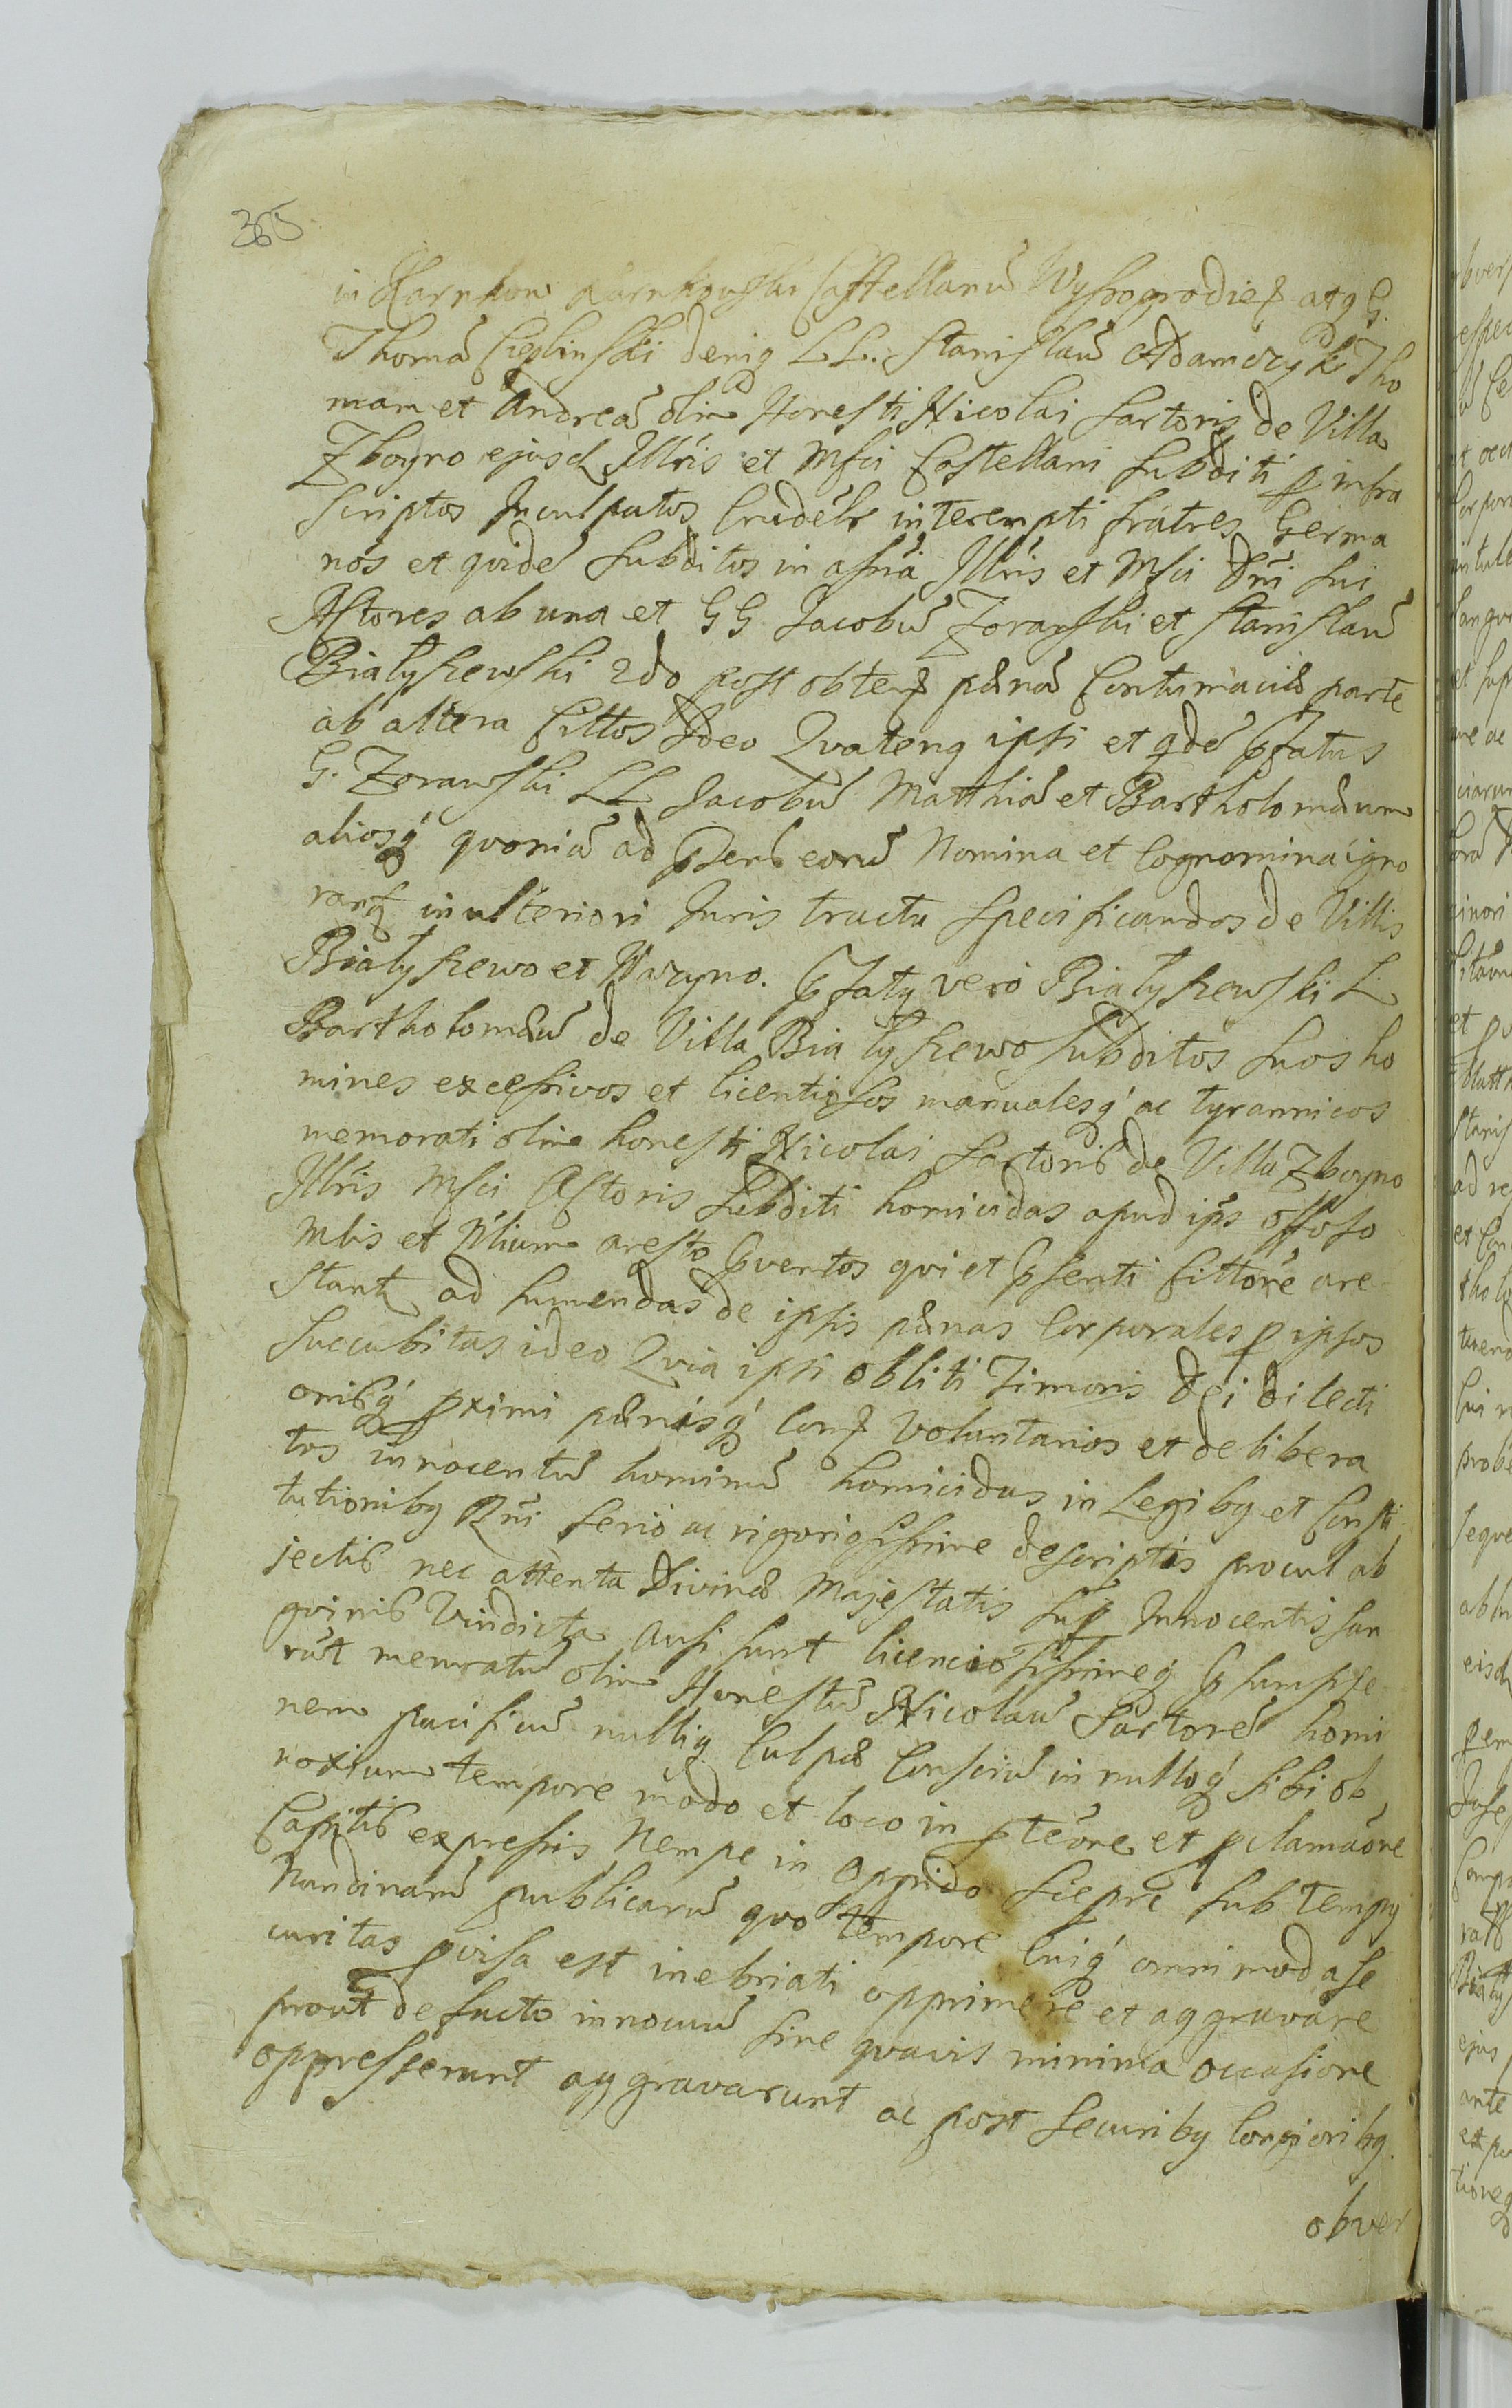 365
in Karnkow Karnkowski Castellanũ Wyszogrodień atq G.
Thomã Cieglinski deniq LL. Stanislaũ Adamczyk Tho
mam et Andreã olim Honesti Nicolai Sartoris de Villa
Zboyno ejusd Illris et Mfci Castellani Subditi p infra
scriptos Inculpatos Crudelr interempti fratres Germa
nos et quidẽ Subditos in assñã Illris et Mfci Dñi sui
Actores ab una et GG Jacobũ Zorawski et Stanislaũ
Bialyszewski 2do post obteñ pœnã Contumaciæ parte
ab altera Cittos Ideo Quatenq ipsi et qdẽ Pfatus
G. Zorawski LL Jacobũ Matthiã et Bartholomæum
aliosq quoniã ad Psens eorũ Nomina et Cognomina igno
rant in ulteriori Juris tractu specificandos de Villis
Bialyszewo et
Pfatq vero Bialyszewski L
Bartholomæũ de Villa Bialyszewo Subditos suos ho
mines excessivos et licentiosos manualesq ac tyrannicos
memorati olim honesti Nicolai Sartoris de Villa Zboyno
Illris Mfci Actoris Subditi homicidas apud ips offoso
Mlis et Nlium aresto Pventos qui et Psenti Cittore are
stant ad sumendas de ipsis pœnas Corporales p ipsos
succubitas ideo Quia ipsi obliti Timoris Dei dilecti
onisq pximi pœnisq Con voluntarios et delibera
tos innocentũ hominũ homicidas in Legibq et Consti
tutionibq Rñi serio ac rigorosissime descriptis procul ab
jectis nec attenta Divinæ Majestatis sup Innocentis san
guinis Vindicta ausi sunt licenciosissimeq Psumpse
rut memratũ olim Honestũ Nicolaũ Sartorẽ homi
nem pacificũ nulliq Culpæ Consciũ in nulloq sibi ob
noxium tempore modo et loco in pteõne et pclamaõne
Capitis expressis Nempe in Oppido Sieprc sub tempq
Nundinarũ publicarũ quo tempore Cuiq omnimoda se
curitas pvisa est inebriati opprimere et aggravare
prout de facto innocuũ sine quavis minima occasione
oppresserunt aggravarunt ac post securibq longioribq
obver